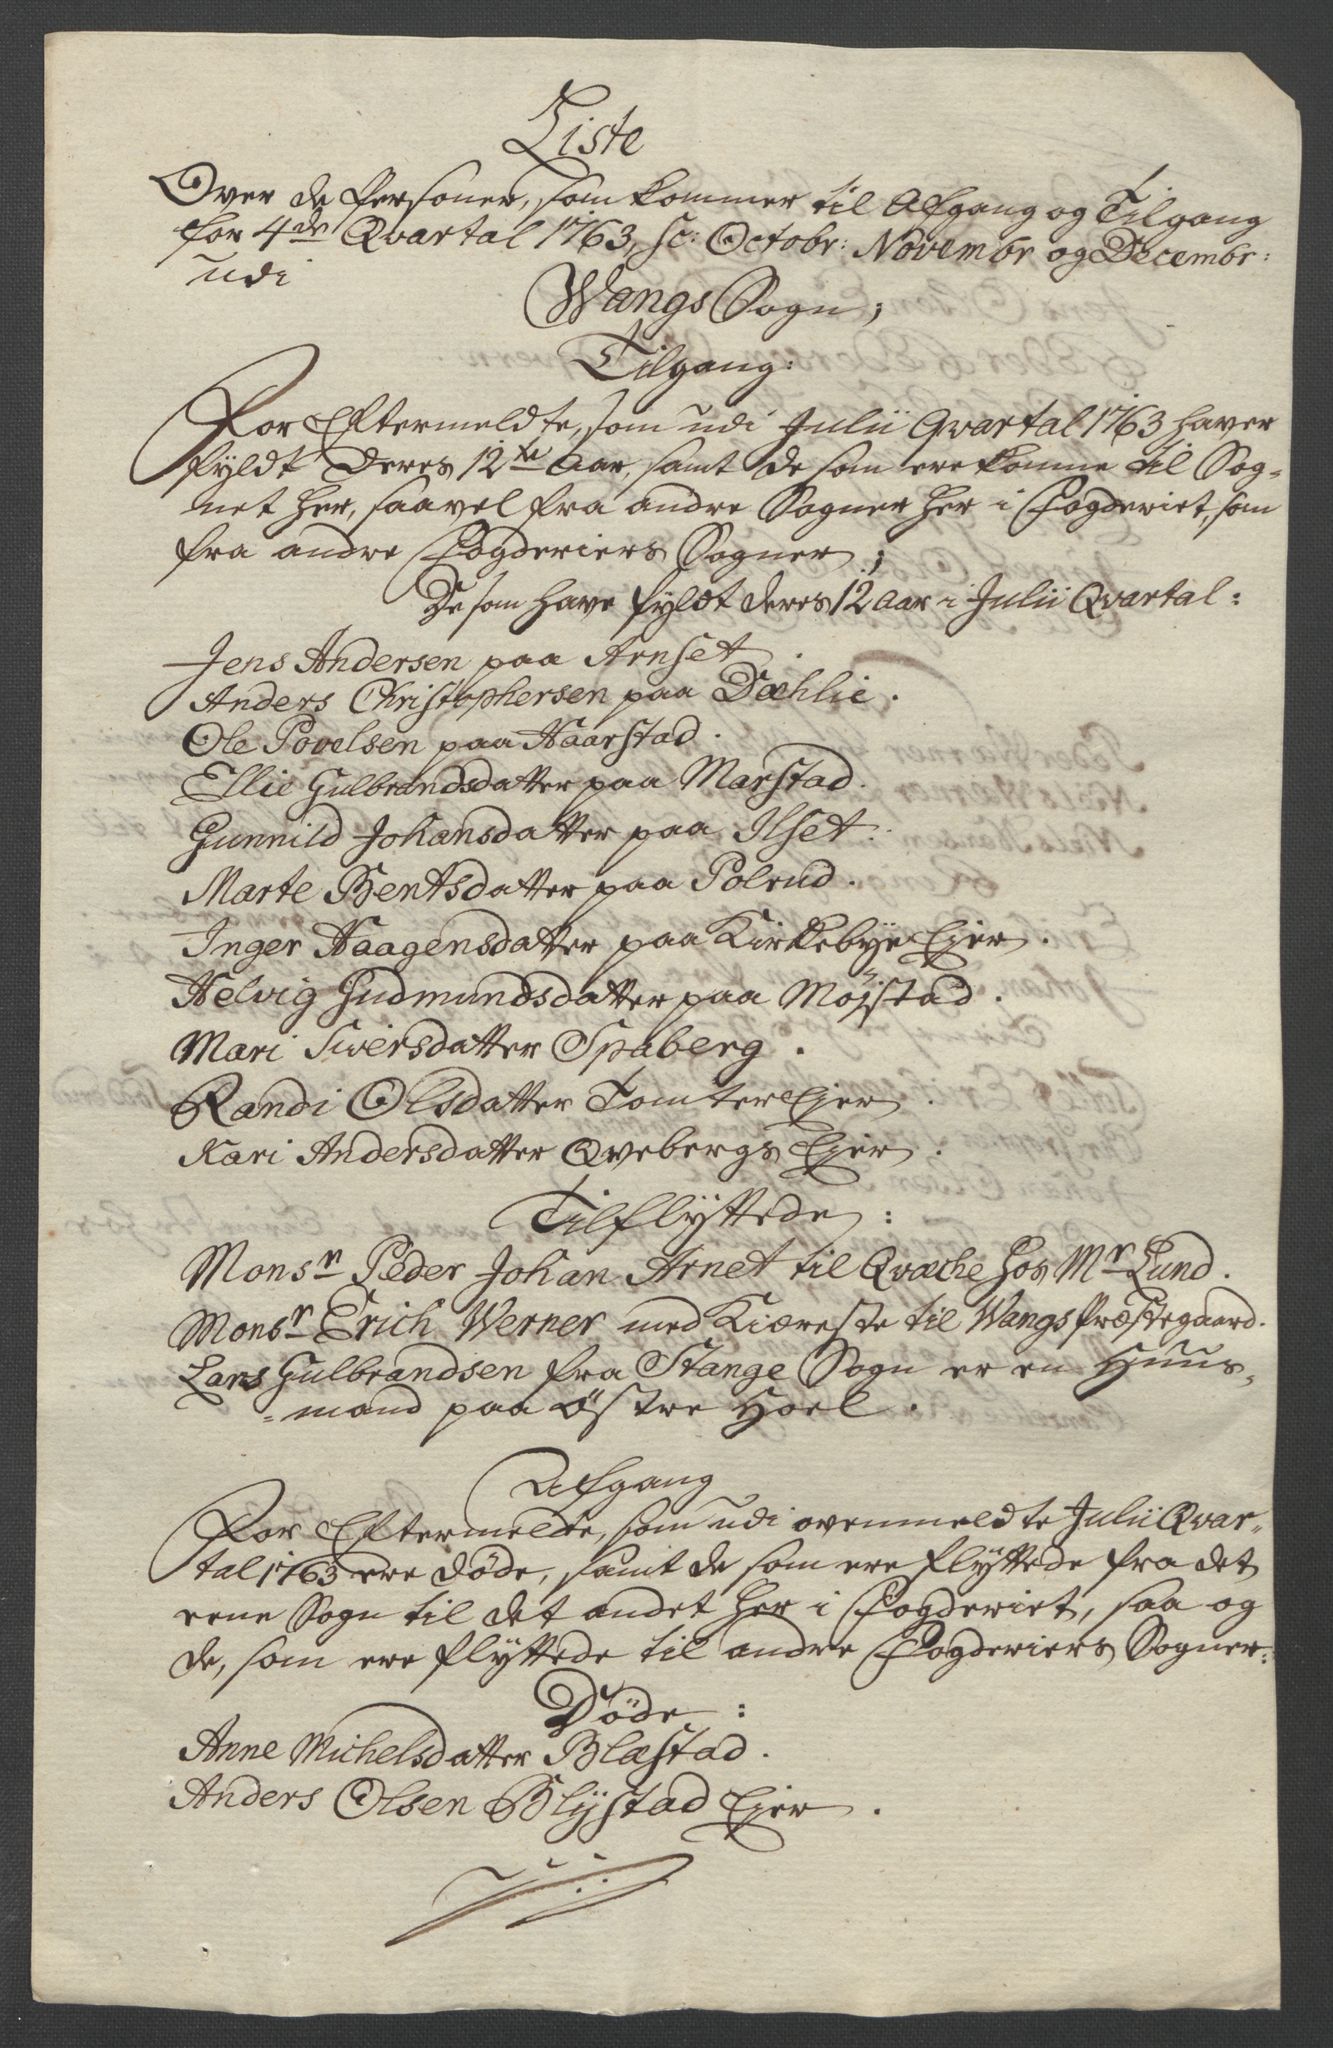 Liste
Over de Personer, som kommer til Afgang og Tilgang
for 4de Qvartal 1763, sc: Octobr: Novembr og Decembr:
udi
Wangs Sogn;
Tilgang:
For Eftermeldte, som udi Julii Qvartal 1763 haver
fyldt deres 12te Aar, samt de som ere komne til Sog-
net her, saavel fra andre Sogner her i Fogderiet, som
fra andre Fogderiers Sogner;
De som have fyldt deres 12 Aar i Julii Qvartal:
Jens Andersen paa Arnset.
Anders Christophersen paa Dæhlie.
Ole Povelsen paa Haarstad.
Ellie Gulbrandsdatter paa Marstad.
Gunnild Johansdatter paa Ilset.
Marte Bentsdatter paa Polrud.
Inger Haagensdatter paa Kirkebye Ejer.
Helvig Gudmundsdatter paa Møjstad.
Mari Siversdatter Spaberg.
Randi Olsdatter Tomter Ejer.
Kari Andersdatter Qvebergs Ejer.
Tilflyttede:
Monsr Peder Johan Arnet til Qvæche hos Mr Lund.
Monsr Erich Werner med Kiæreste til Wangs Præstegaard.
Lars Gulbrandsen fra Stange Sogn er en Huus-
-mand paa Østre Hoel.
Afgang
For Eftermeldte, som udi ovenmeldte Julii Qvar-
tal 1763 ere døde, samt de som ere flyttede fra det
eene Sogn til det andet her i Fogderiet, saa og
de, som ere flyttede til andre Fogderiers Sogner:
Døde:
Anne Michelsdatter Blæstad.
Anders Olsen Blystad Ejer.